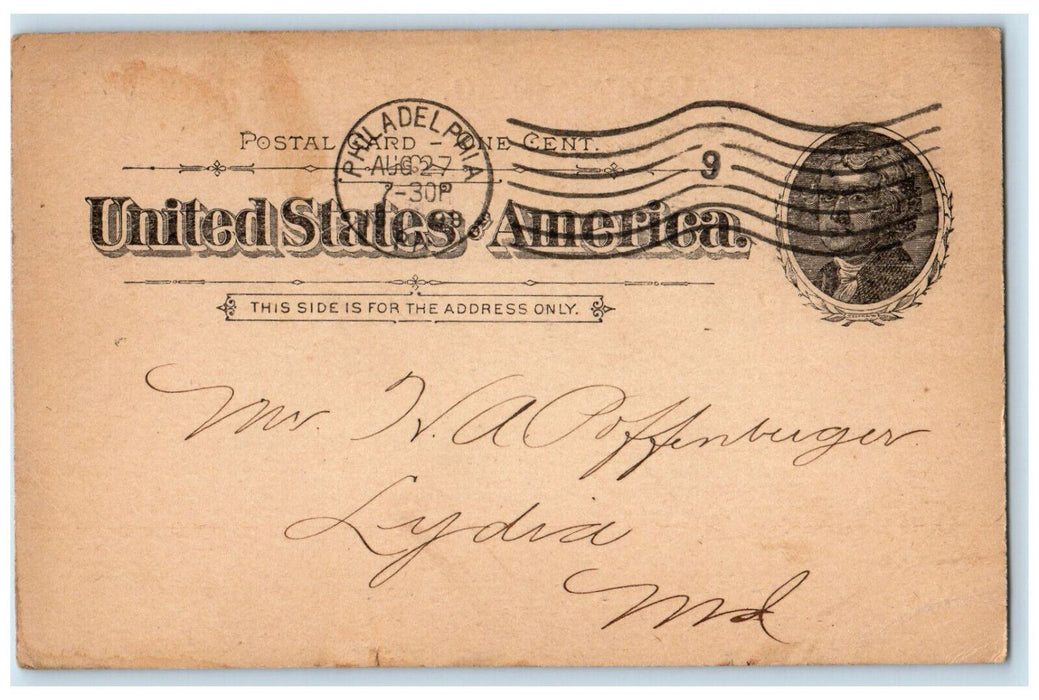 POSTAL CARD – ONE CENT.
PHILADELPHIA
AUG 27
7-30P
9
United States America.
THIS SIDE IS FOR THE ADDRESS ONLY.
Mr. H. A. Poffenberger
Lydia
Md